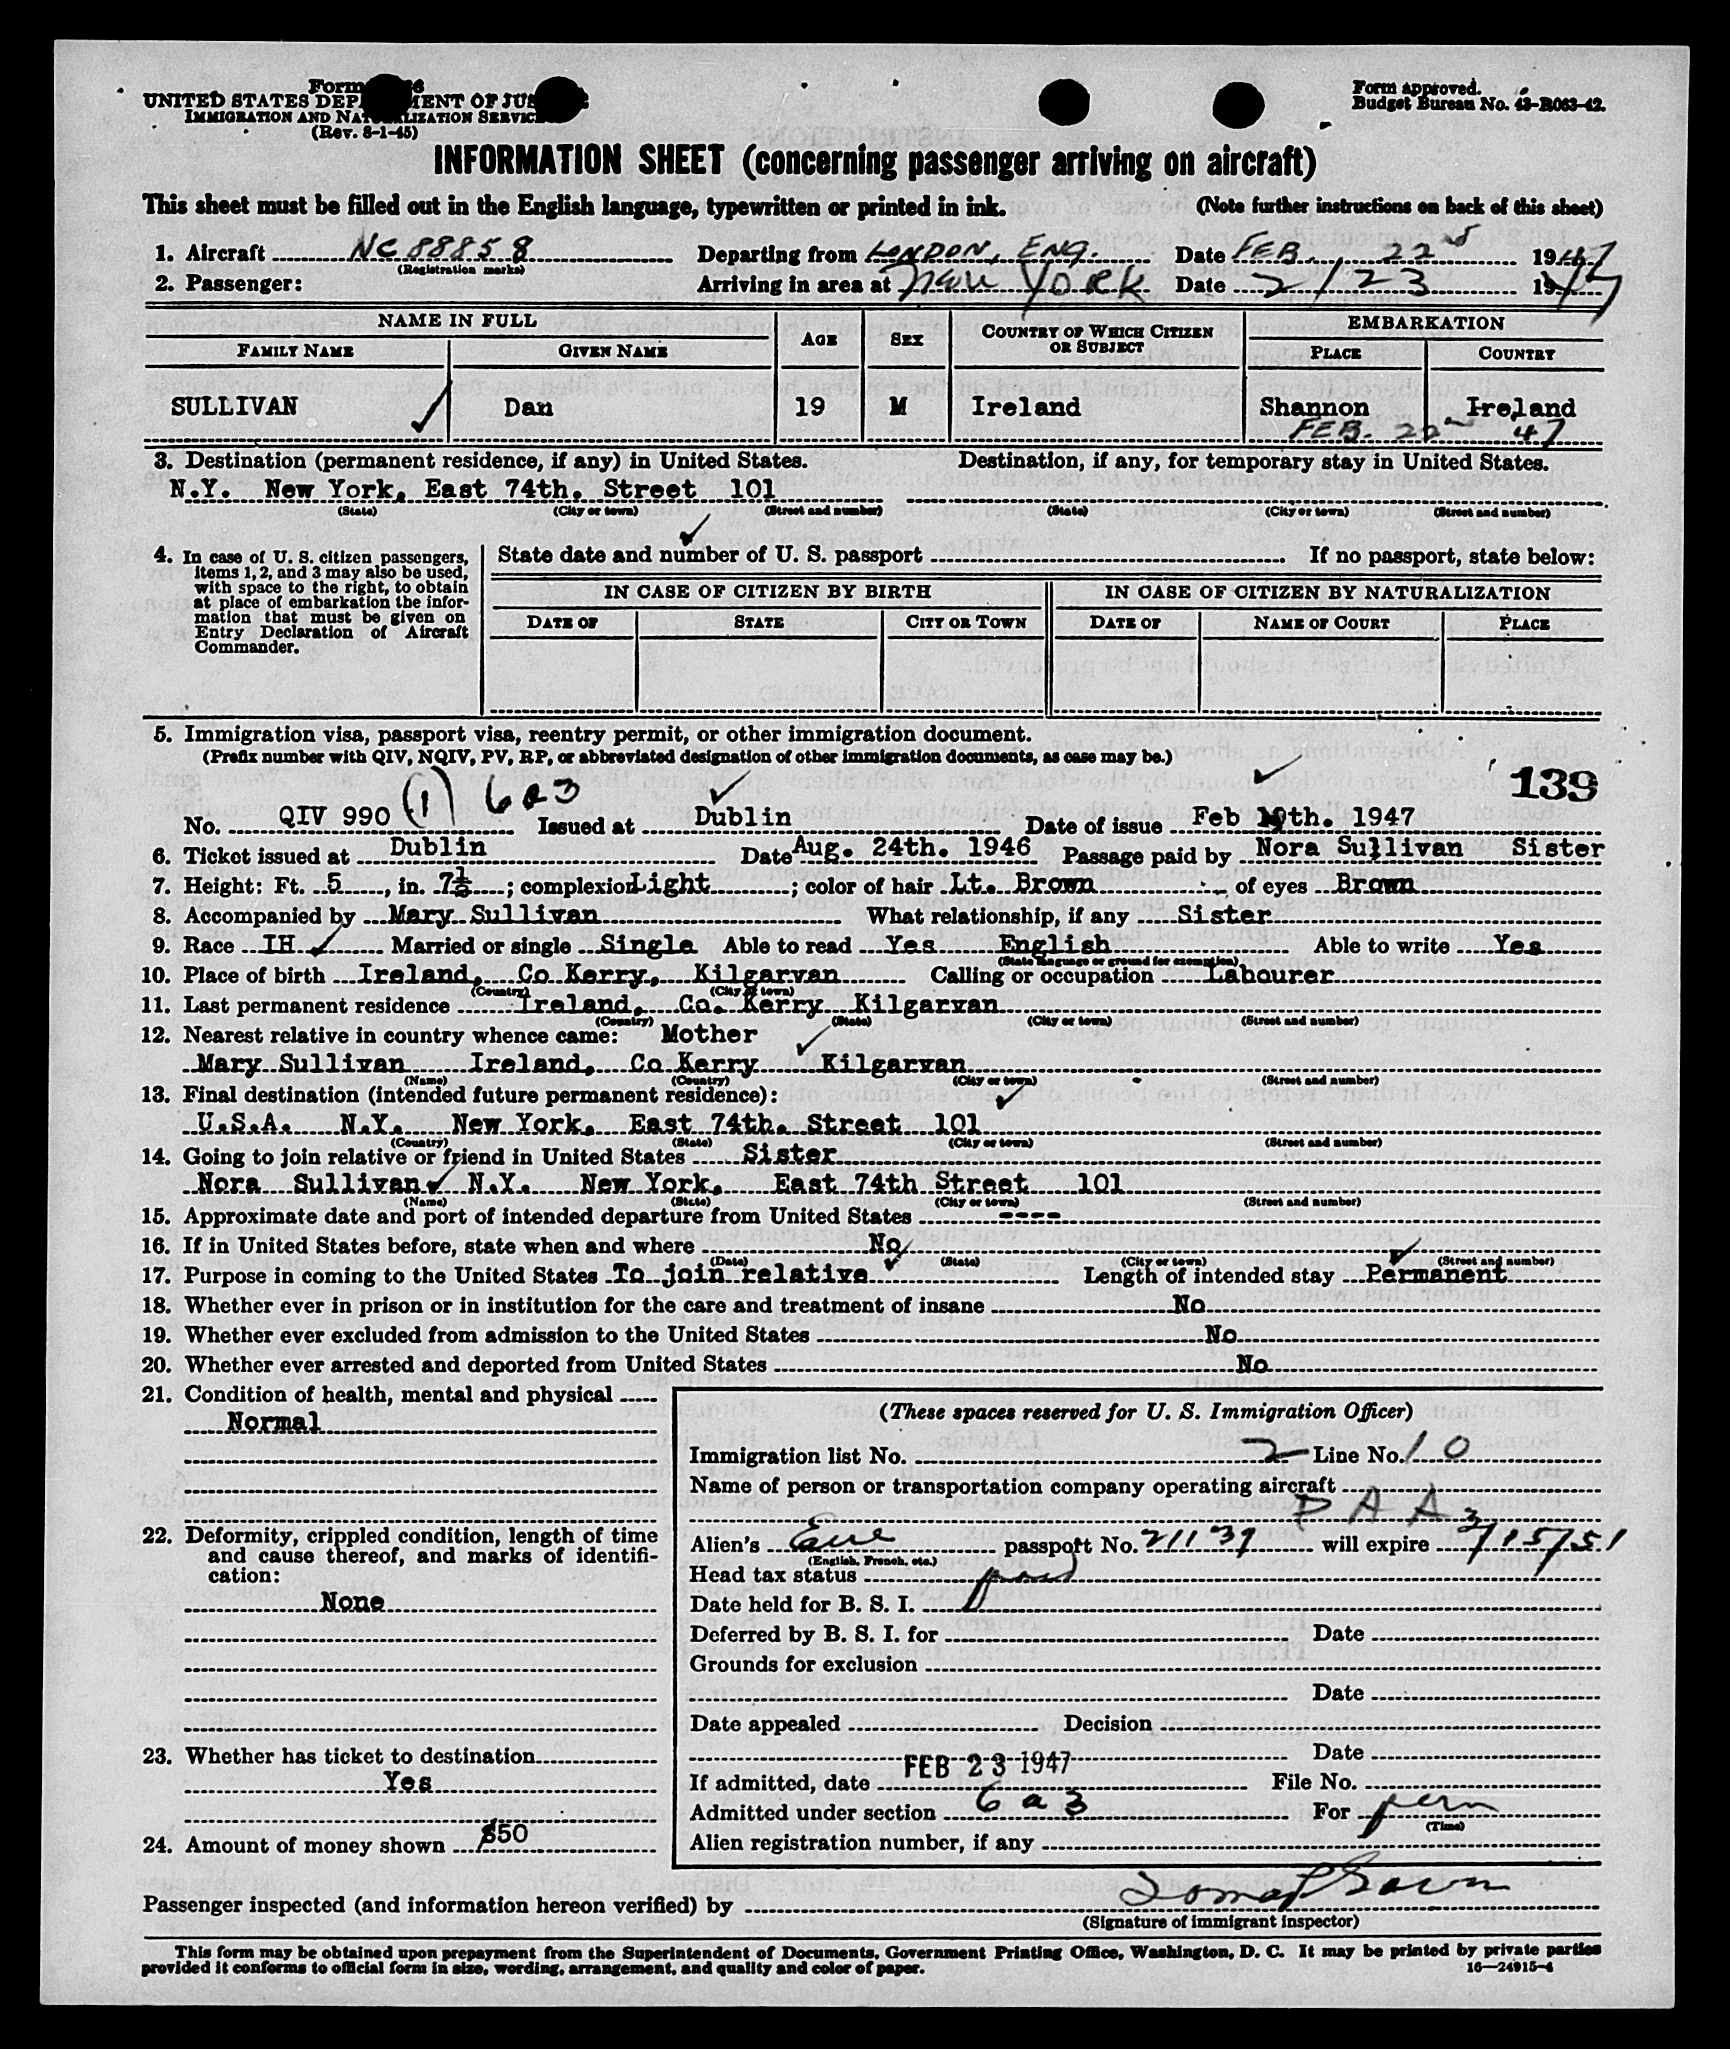 Form
UNITED STATES DEP MENT OF JUS
IMMIGRATION AND NAT LIZATION SERVIC
(Rev. 8-1-45)
Form approved.
Budget Bureau No. 43-R063-42.
INFORMATION SHEET (concerning passenger arriving on aircraft)
This sheet must be filled out in the English language, typewritten or printed in ink. (Note further instructions on back of this sheet)
1. Aircraft NC 88858 Departing from LONDON, ENG. Date FEB. 22nd 1947
(Registration marks)
2. Passenger: Arriving in area at New York Date 2/23 1947
NAME IN FULL AGE SEX COUNTRY OF WHICH CITIZEN OR SUBJECT EMBARKATION
FAMILY NAME GIVEN NAME PLACE COUNTRY
SULLIVAN Dan 19 M Ireland Shannon Ireland
FEB. 22nd 47
3. Destination (permanent residence, if any) in United States. Destination, if any, for temporary stay in United States.
N.Y. New York, East 74th. Street 101
(State) (City or town) (Street and number) (State) (City or town) (Street and number)
4. In case of U. S. citizen passengers, items 1, 2, and 3 may also be used, with space to the right, to obtain at place of embarkation the information that must be given on Entry Declaration of Aircraft Commander.
State date and number of U. S. passport If no passport, state below:
IN CASE OF CITIZEN BY BIRTH IN CASE OF CITIZEN BY NATURALIZATION
DATE OF STATE CITY OR TOWN DATE OF NAME OF COURT PLACE
5. Immigration visa, passport visa, reentry permit, or other immigration document.
(Prefix number with QIV, NQIV, PV, RP, or abbreviated designation of other immigration documents, as case may be.)
139
No. QIV 990 (1) 6a3 Issued at Dublin Date of issue Feb 19th. 1947
6. Ticket issued at Dublin Date Aug. 24th. 1946 Passage paid by Nora Sullivan Sister
7. Height: Ft. 5, in. 7½; complexion Light; color of hair Lt. Brown of eyes Brown
8. Accompanied by Mary Sullivan What relationship, if any Sister
9. Race IH Married or single Single Able to read Yes English Able to write Yes
(State language or ground for exemption)
10. Place of birth Ireland, Co Kerry, Kilgarvan Calling or occupation Labourer
(Country) (City or town)
11. Last permanent residence Ireland, Co. Kerry Kilgarvan
(Country) (State) (City or town) (Street and number)
12. Nearest relative in country whence came: Mother
Mary Sullivan Ireland, Co Kerry Kilgarvan
(Name) (Country) (City or town) (Street and number)
13. Final destination (intended future permanent residence):
U.S.A. N.Y. New York, East 74th. Street 101
(Country) (State) (City or town) (Street and number)
14. Going to join relative or friend in United States Sister
Nora Sullivan N.Y. New York, East 74th Street 101
(Name) (State) (City or town) (Street and number)
15. Approximate date and port of intended departure from United States ----
16. If in United States before, state when and where No
(Date) (State) (City or town) (Street and number)
17. Purpose in coming to the United States To join relative Length of intended stay Permanent
18. Whether ever in prison or in institution for the care and treatment of insane No
19. Whether ever excluded from admission to the United States No
20. Whether ever arrested and deported from United States No
21. Condition of health, mental and physical
Normal
22. Deformity, crippled condition, length of time and cause thereof, and marks of identification:
None
23. Whether has ticket to destination
Yes
24. Amount of money shown $50
(These spaces reserved for U. S. Immigration Officer)
Immigration list No. 2 Line No. 10
Name of person or transportation company operating aircraft
P A A
Alien's Eire passport No. 21137 will expire 3/15/51
(English, French, etc.)
Head tax status paid
Date held for B. S. I.
Deferred by B. S. I. for Date
Grounds for exclusion
Date
Date appealed Decision
Date
If admitted, date FEB 23 1947 File No.
Admitted under section 6a3 For perm
(Time)
Alien registration number, if any
Passenger inspected (and information hereon verified) by
(Signature of immigrant inspector)
This form may be obtained upon prepayment from the Superintendent of Documents, Government Printing Office, Washington, D. C. It may be printed by private parties
provided it conforms to official form in size, wording, arrangement, and quality and color of paper. 16—24915-4